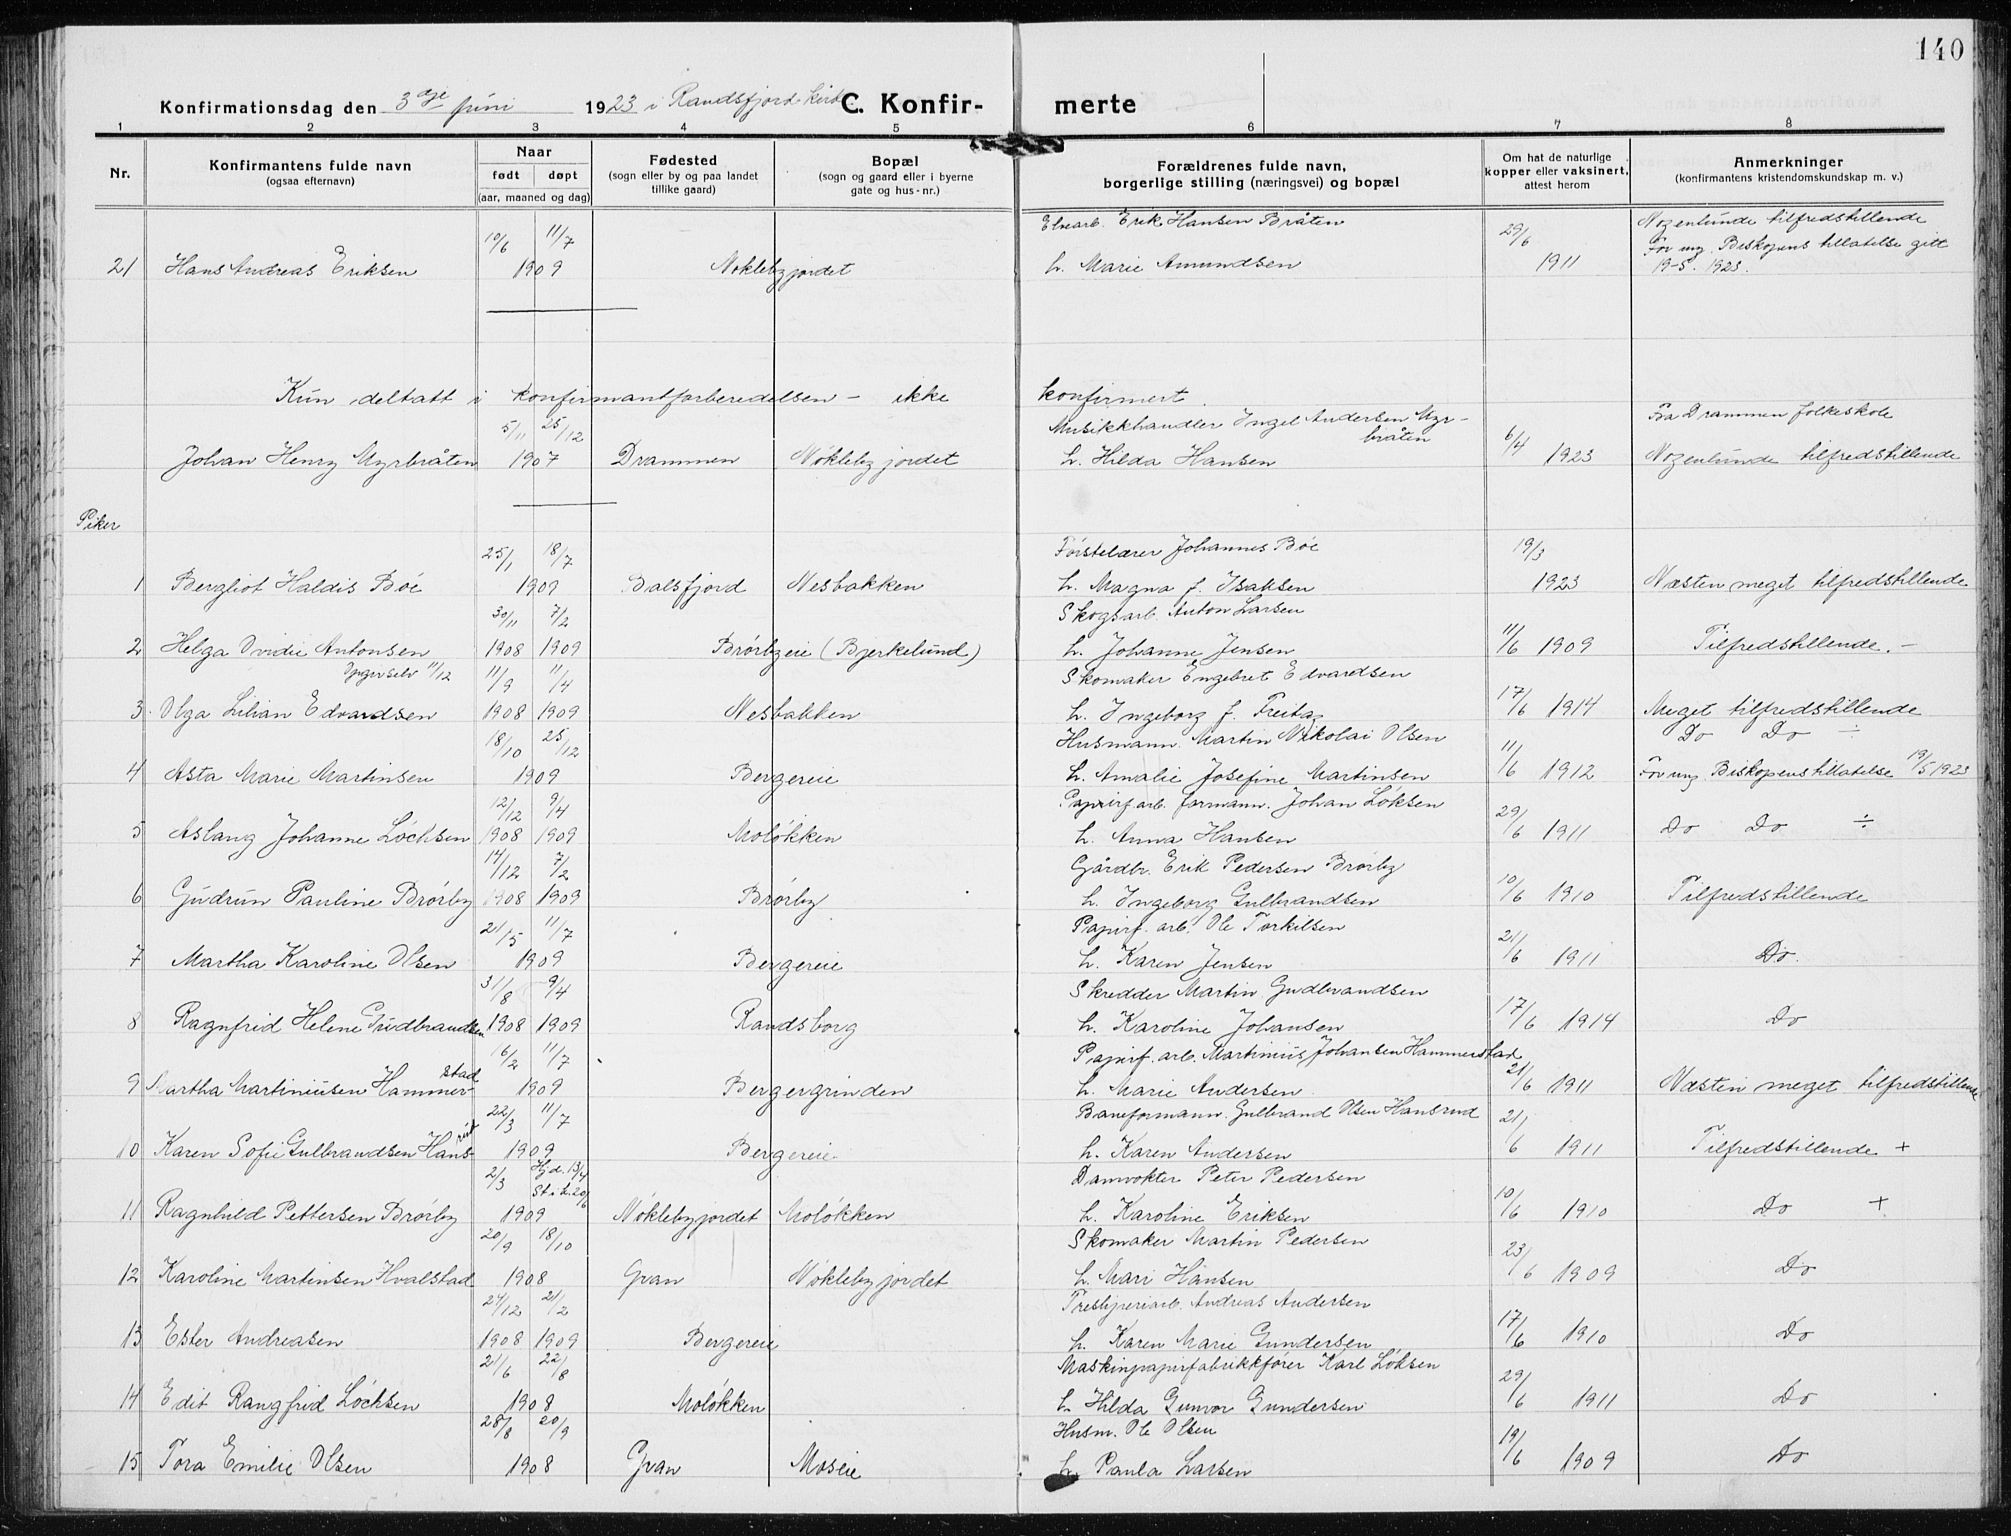 140
Konfirmationsdag den 3dje juni 1923 i Randsfjord kirke C. Konfirmerte
1 2 3 4 5 6 7 8
Nr. Konfirmantens fulde navn (ogsaa efternavn) Naar født døpt (aar, maaned og dag) Fødested (sogn eller by og paa landet tillike gaard) Bopæl (sogn og gaard eller i byerne gate og hus-nr.) Forældrenes fulde navn, borgerlige stilling (næringsvei) og bopæl Om hat de naturlige kopper eller vaksinert, attest herom Anmerkninger (konfirmantens kristendomskundskap m. v.)
10/6 11/7 Elvearb. Erik Hansen Bråten 29/6 Nogenlunde tilfredstillende
For ung. Biskopens tillatelse gitt
21 Hans Andreas Eriksen 1909 Nøklebyjordet h. Marie Amundsen 1911 19-5. 1923.
Kun deltatt i konfirmantforberedelsen – ikke konfirmert.
5/11 25/12 Musikkhandler Ingel Andersen Myrbråten Fra Drammen folkeskole
Johan Henry Myrbråten 1907 Drammen Nøklebyjordet h. Hilda Hansen 6/4 1923 Nogenlunde tilfredstillende
Piker
25/1 18/7 Førstelærer Johannes Bøe 19/3
1 Bergliot Haldis Bøe 1909 Balsfjord Nesbakken h. Magna f. Isaksen 1923 Næsten meget tilfredstillende
30/11 7/2 Skogsarb. Anton Larsen
2 Helga Ovidie Antonsen 1908 1909 Brørbyeie (Bjerkelund) h. Johanne Jensen 11/6 1909 Tilfredstillende. –
11/12 11/9 11/4 Skomaker Engebret Edvardsen
3. Olga Lilian Edvardsen 1908 1909 Nesbakken h. Ingeborg f. Freitag 17/6 1914 Meget tilfredstillende
18/10 25/12 Husmann. Martin Nikolai Olsen Do Do ÷
4 Asta Marie Martinsen 1909 Bergereie h. Amalie Josefine Martinsen 11/6 1912 For ung. Biskopens tillatelse 19/5 1923
12/12 9/4 Papirf. arb. formann. Johan Løksen
5 Aslaug Johanne Løchsen 1908 1909 Moløkken h. Anna Hansen 29/6 1911 Do Do ÷
14/12 7/2 Gårdbr. Erik Pedersen Brørby
6 Gudrun Pauline Brørby 1908 1909 Brørby h. Ingeborg Gulbrandsen 10/6 1910 Tilfredstillende
21/5 11/7 Papirf. arb. Ole Torkilsen
7 Martha Karoline Olsen 1909 Bergereie h. Karen Jensen 21/6 1911 Do.
31/8 9/4 Skredder Martin Gudbrandsen
8 Ragnfrid Helene Gudbrandsen 1908 1909 Randsborg h. Karoline Johansen 17/6 1914 Do
16/2 11/7 Papirf. arb. Martinius Johansen Hammerstad
9 Martha Martiniusen Hammerstad 1909 Bergergrinden h. Marie Andersen 21/6 1911 Næsten meget tilfredstillende
22/3 11/7 Baneformann. Gulbrand Olsen Hansrud
10 Karen Sofie Gulbrandsen Hansrud 1909 Bergereie h. Karen Andersen 21/6 1911 Tilfredstillende +
2/3 Hjd. 13/4 St i k. 20/6 Damvokter Peter Pedersen
11 Ragnhild Pettersen Brørby 1909 Nøklebyjordet Moløkken h. Karoline Eriksen 10/6 1910 Do +
20/9 18/10 Skomaker Martin Pedersen
12 Karoline Martinsen Hvalstad 1908 Gran Nøklebyjordet h. Mari Hansen 23/6 1909 Do
27/12 21/2 Tresliperiarb. Andreas Andersen
13 Ester Andreasen 1908 1909 Bergereie h. Karen Marie Gundersen 17/6 1910 Do
21/6 22/8 Maskinpapirfabrikkfører Karl Løksen
14 Edit Rangfrid Løchsen 1908 Moløkken h. Hilda Gunvor Gundersen 29/6 1911 Do
28/8 20/9 Husm. Ole Olsen
15 Tora Emilie Olsen 1908 Gran Moseie h. Paula Larsen 19/6 1909 Do